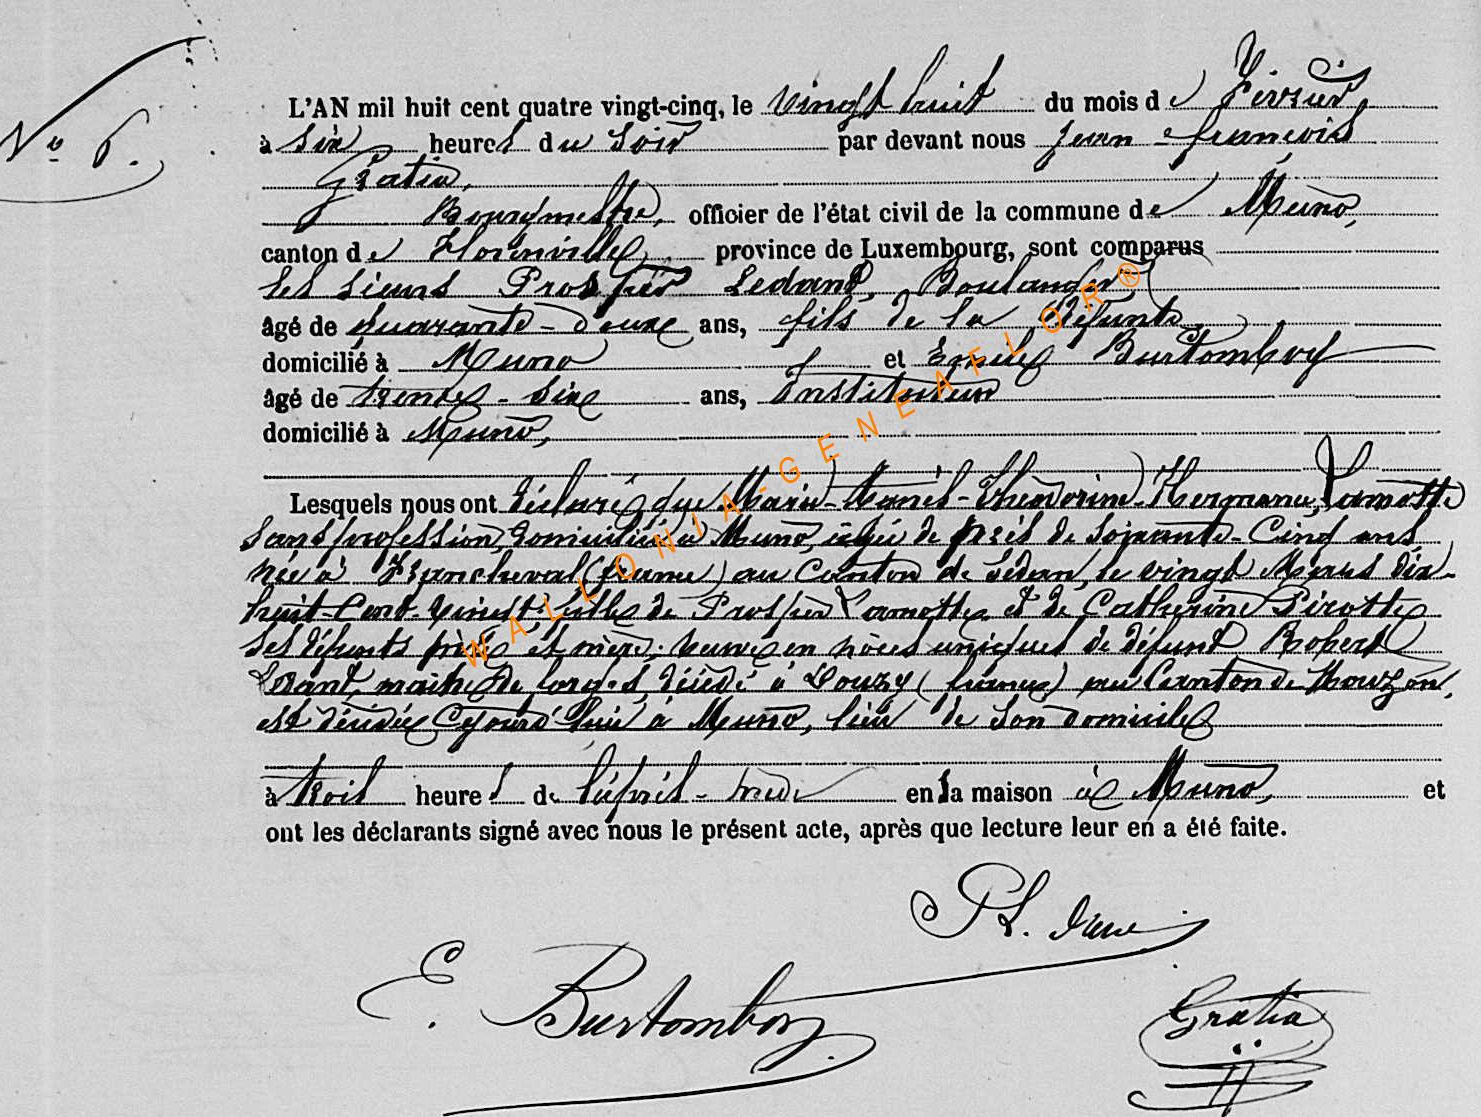 N° 6.
L'AN mil huit cent quatre vingt-cinq, le vingt huit du mois de Février
à six heures du soir par devant nous Jean-françois
Gratia,
Bourgmestre, officier de l'état civil de la commune de Muno,
canton de Florenville, province de Luxembourg, sont comparus
les sieurs Prosper Ledant, Boulanger
âgé de quarante-deux ans, fils de la défunte
domicilié à Muno et Emile Burtomboy
âgé de trente-six ans, Instituteur
domicilié à Muno,
Lesquels nous ont déclaré que Marie-Agnès-Théodorine-Hermance, Lamotte
sans profession, domiciliée à Muno, âgée de près de soixante-cinq ans
née à Francheval (france) au Canton de Sedan, le vingt Mars dix-
huit-Cent-vingt, fille de Prosper Lamotte et de Catherine Pirotte
ses défunts père et mère, veuve en nôces uniques de défunt Robert
Ledant, maître de forges, décédé à Douzy (france) au Canton de Mouzon,
est décédée Cejourd'hui à Muno, lieu de son domicile
à trois heures de l'après-midi en sa maison à Muno, et
ont les déclarants signé avec nous le présent acte, après que lecture leur en a été faite.
E. Burtomboy
Gratia
WALLONIA-GENEAFLOR®